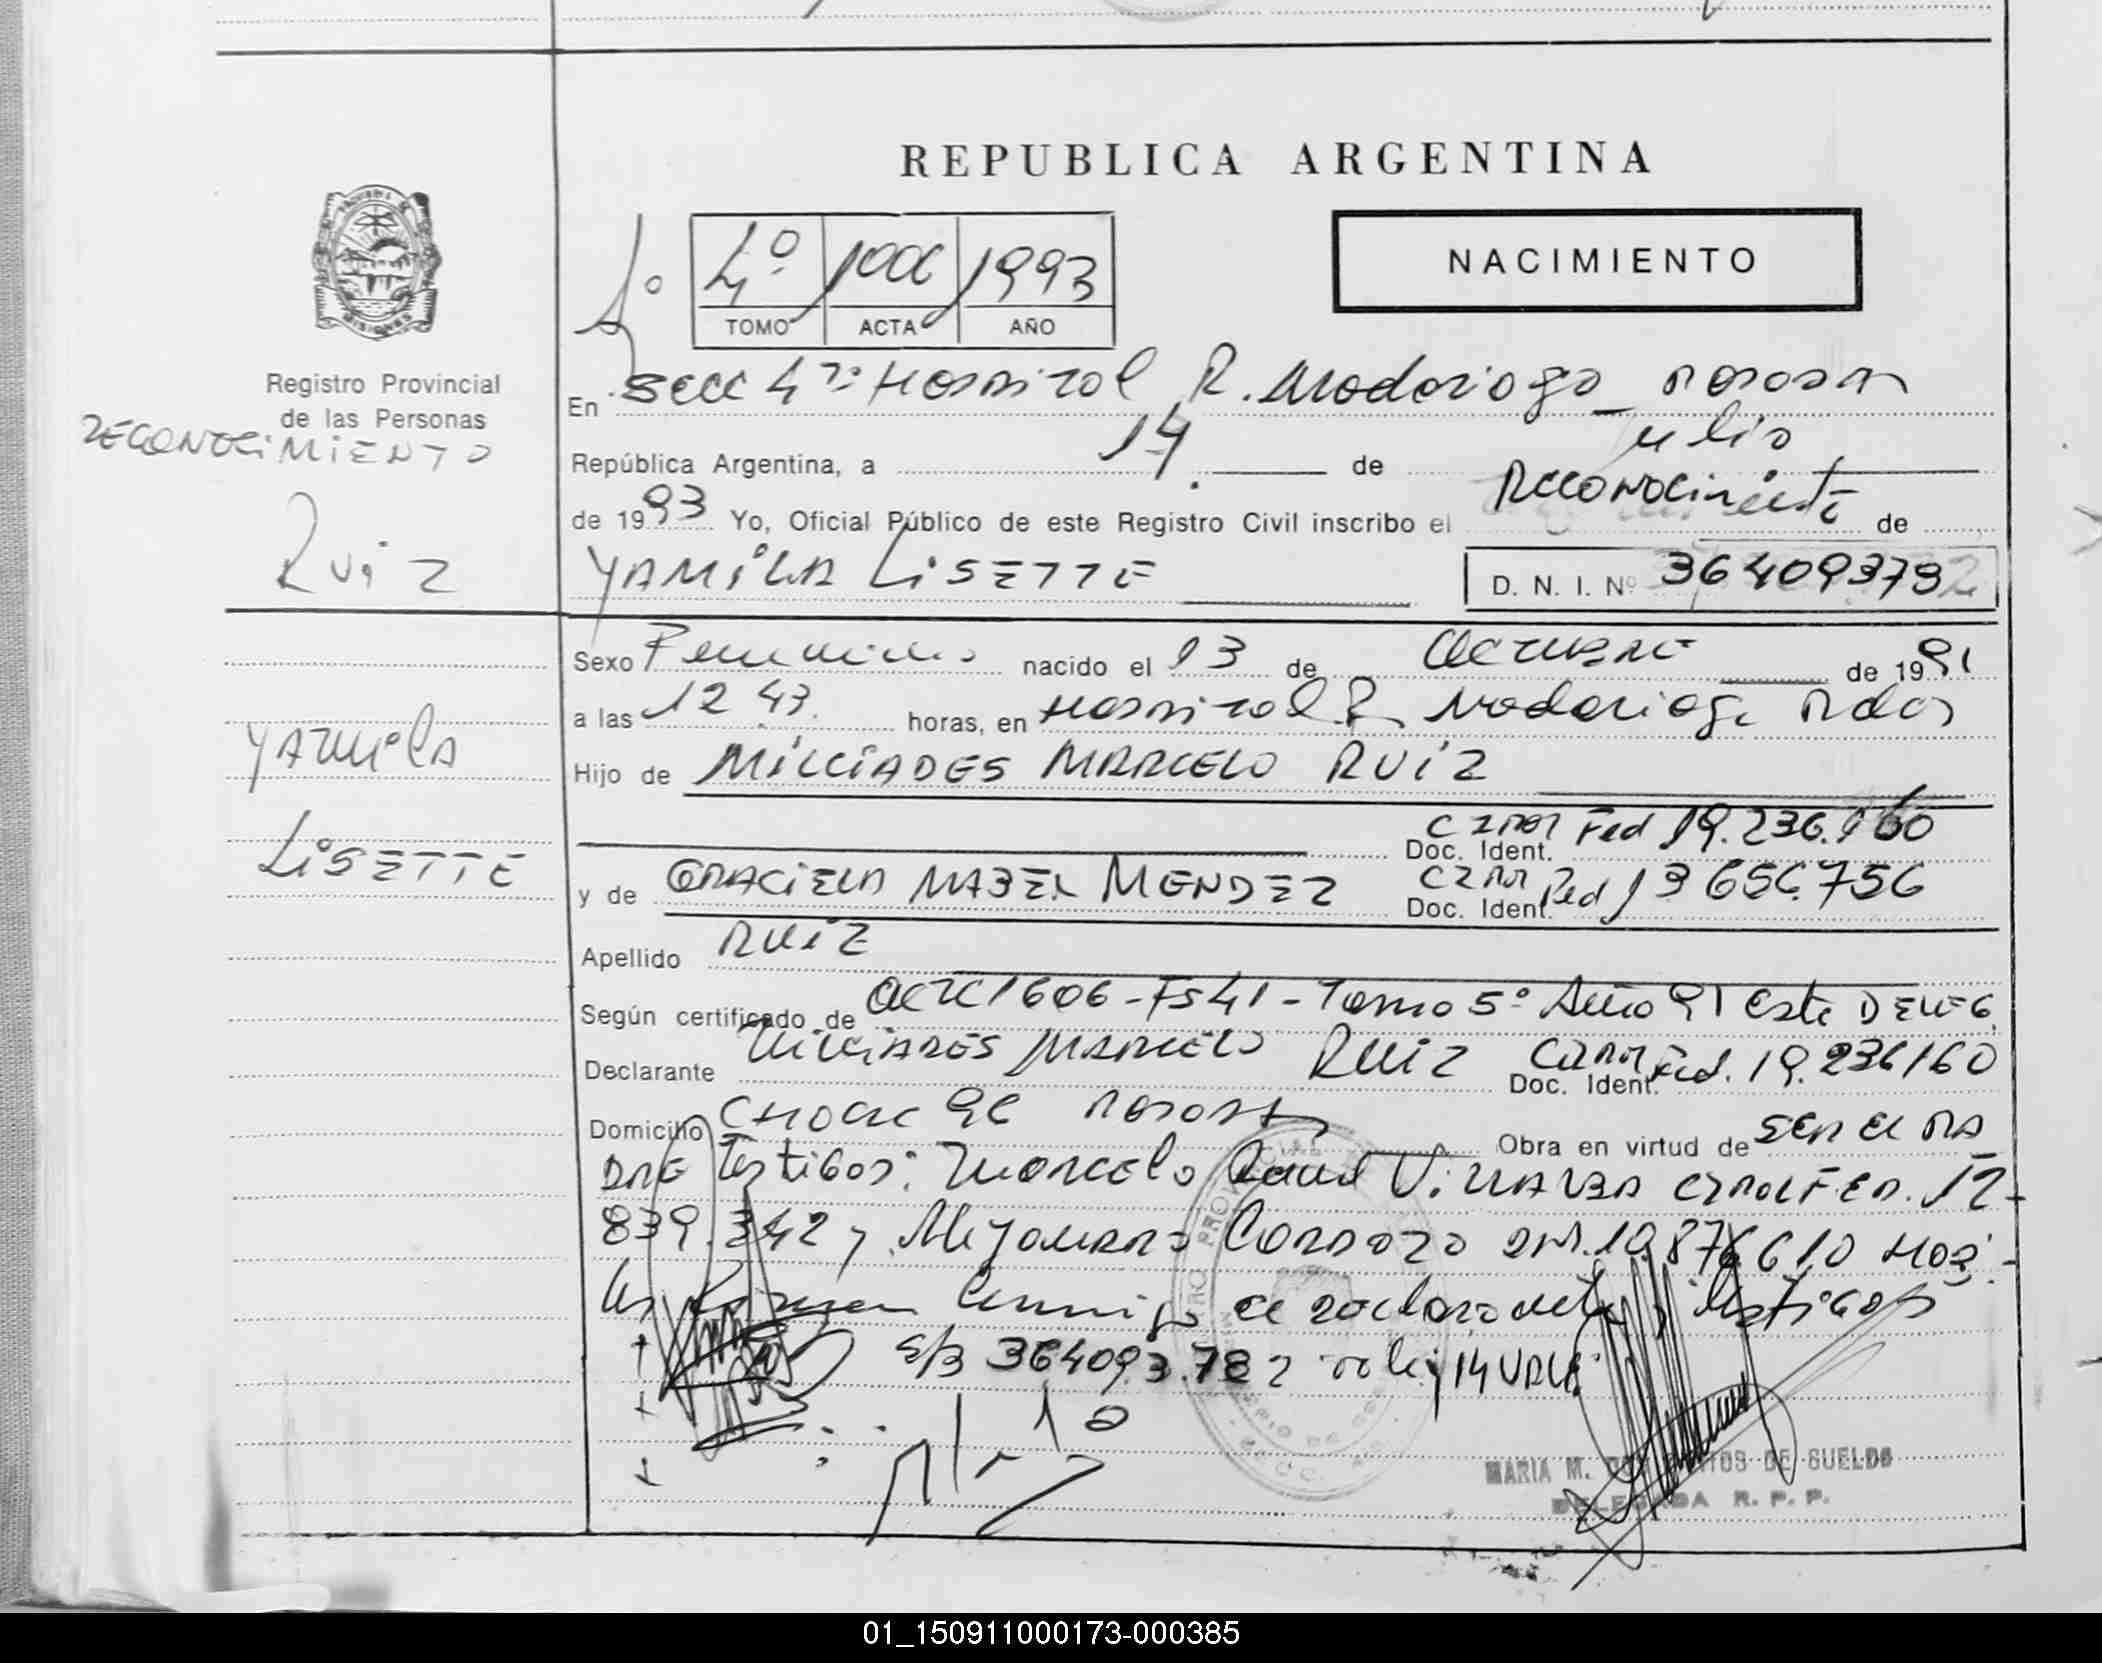 REPUBLICA ARGENTINA
NACIMIENTO
4º 1993
TOMO ACTA AÑO
Registro Provincial
de las Personas
RECONOCIMIENTO
RUiZ
YAMILA
LiSETTE
En Secc 4ta Hospital R. Madariaga Posadas
República Argentina, a 14 de Julio
de 1993 Yo, Oficial Público de este Registro Civil inscribo el Reconocimiento de
YAMiLA LiSETTE D. N. I. Nº
Sexo Femenino nacido el 13 de Octubre de 1991
a las 12 43 horas, en Hospital R. Madariaga Pdas
Hijo de MiLCiADES MARCELO RUiZ
Doc. Ident. Fed 19.236.160
y de GRACiELA MABEL MENDEZ Doc. Ident. Fed 13656756
Apellido RUiZ
Según certificado de Acta 1606 - Fs 41 - Tomo 5º Año 91 Esta DELEG
Declarante MiLCiADES MARCELO RUiZ Doc. Ident. Fed. 19.236160
Domicilio Posadas Obra en virtud de ser el PA
DRE Testigos: Marcelo Raul ViLLALBA Fed. 12
839.342 y Alejandro Cardozo 10.876610 Hos
firman conmigo el declarante y testigos
s/b 36409.3.782 vale y 14 VALE
MARIA M. DE SUELDO
DELEGADA R. P. P.
01_150911000173-000385